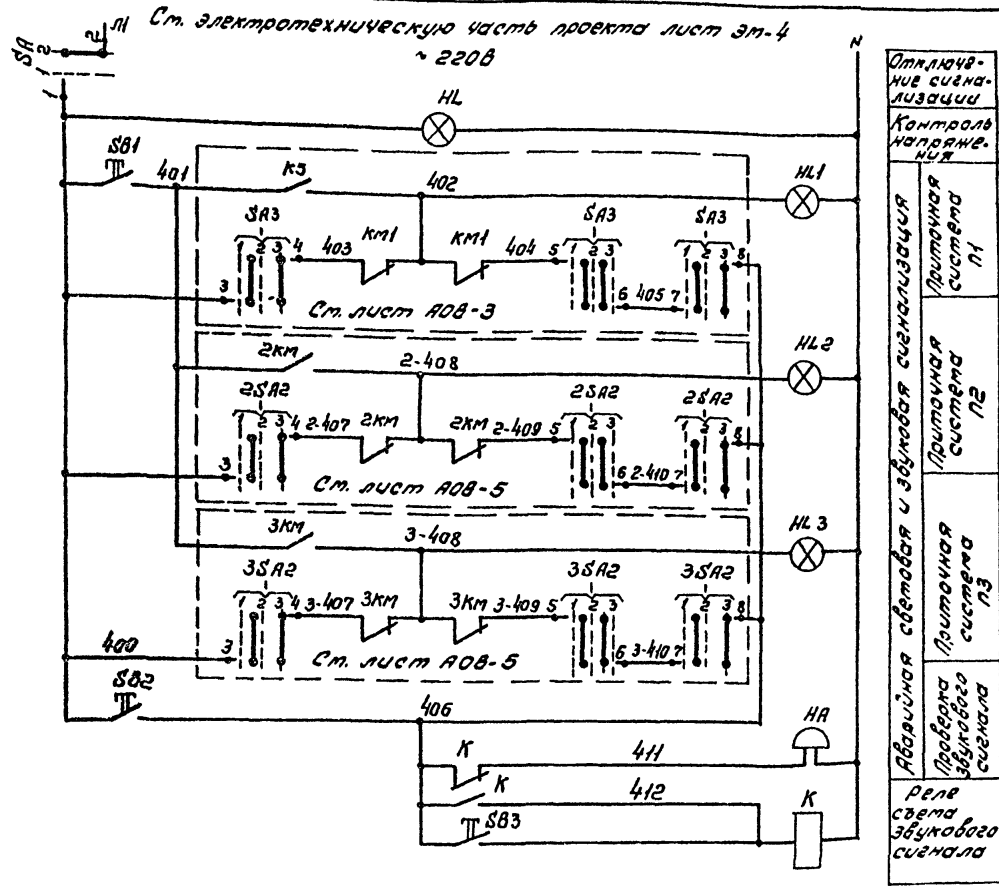 См. электротехническую часть проекта лист ЭМ-4
~ 220В
SA
2
2
Л1
1
1
N
HL
SB1
401
K5
402
HL1
SA3
SA3
SA3
1 2 3 4 403 КМ1
КМ1 404 5 1 2 3
1 2 3 8
3
6 405 7
См. лист АОВ-3
2КМ
2-408
HL2
2SA2
2SA2
2SA2
1 2 3 4 2-407 2КМ
2КМ 2-409 5 1 2 3
1 2 3 8
3
6 2-410 7
См. лист АОВ-5
3КМ
3-408
HL3
3SA2
3SA2
3SA2
1 2 3 4 3-407 3КМ
3КМ 3-409 5 1 2 3
1 2 3 8
400
3
6 3-410 7
См. лист АОВ-5
SB2
406
HA
K
411
K
412
K
SB3
Отключе-
ние сигна-
лизации
Контроль
напряже-
ния
Аварийная световая и звуковая сигнализация
Приточная
система
П1
Приточная
система
П2
Приточная
система
П3
Проверка
звукового
сигнала
Реле
съема
звукового
сигнала